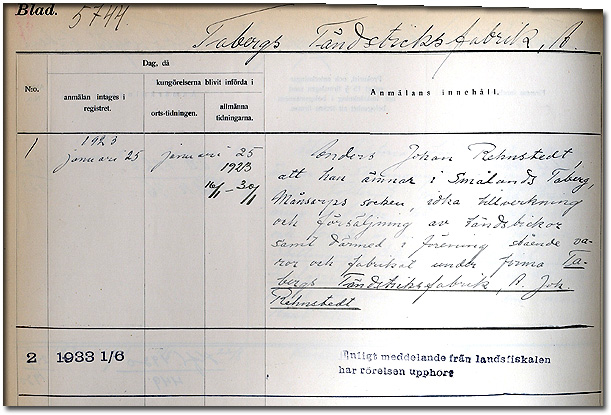 Blad. 5744.
Tabergs Tändsticksfabrik, A.
N:o.
Dag, då
anmälan intages i registret.
kungörelserna blivit införda i
orts-tidningen.
allmänna tidningarna.
Anmälans innehåll.
1
1923
januari 25
januari 25
1923
16/1 – 30/1
Anders Johan Rehnstedt,
att han ämnar i Smålands Taberg,
Månsarps socken, idka tillverkning
och försäljning av tändstickor
samt därmed i förening stående va-
ror och fabrikat under firma Ta-
bergs Tändsticksfabrik, A. Joh.
Rehnstedt
2 1933 1/6
Enligt meddelande från landsfiskalen
har rörelsen upphört